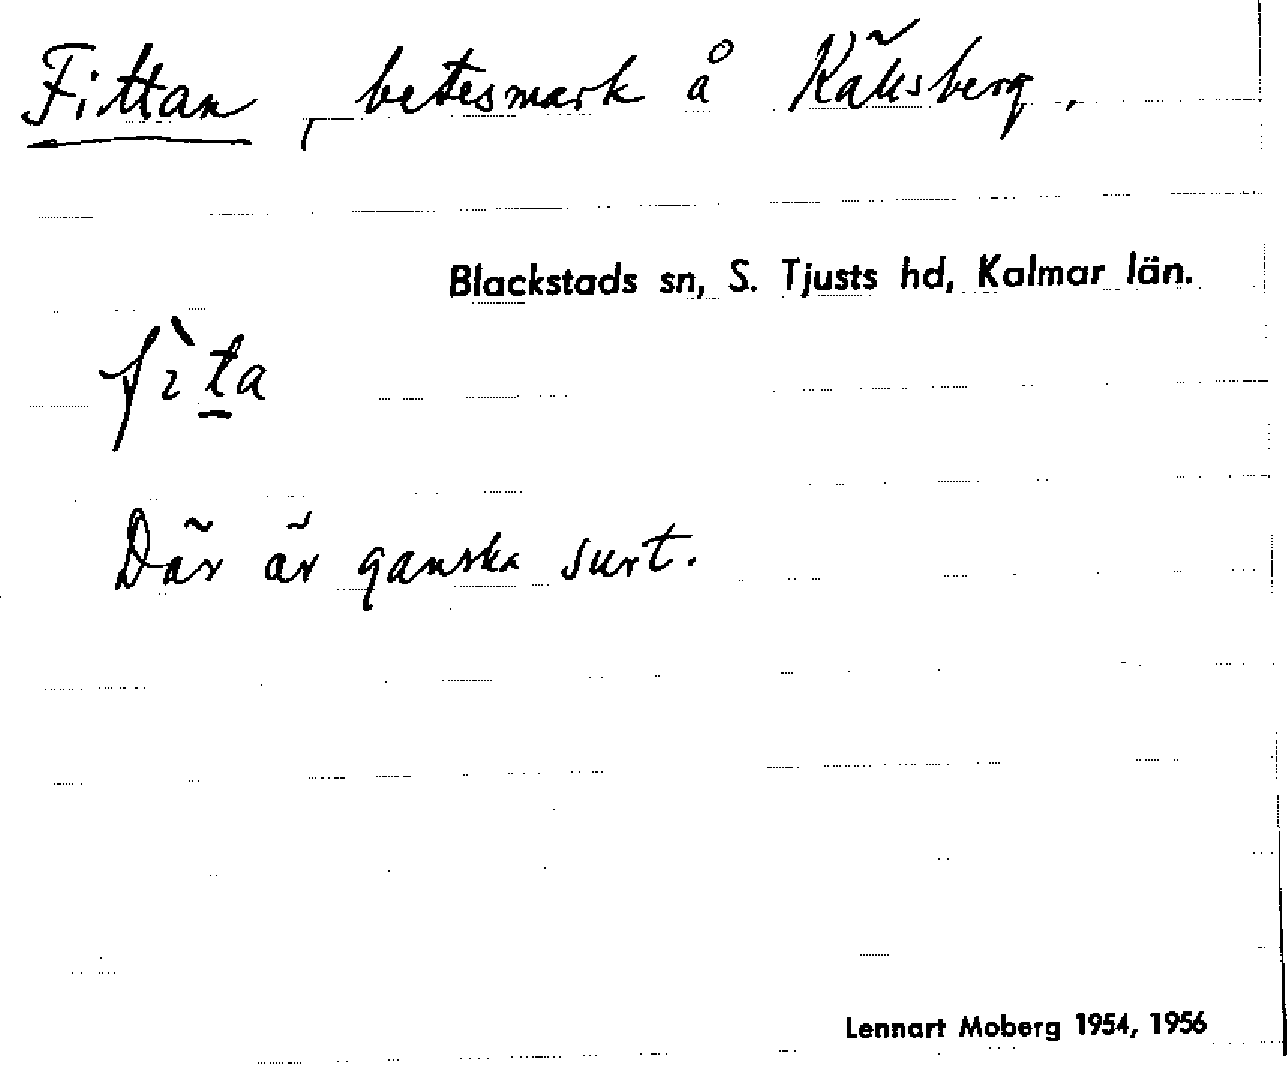 Fittan, betesmark å Källsberg.
Blackstads sn, S. Tjusts hd, Kalmar län.
fìta
Där är ganska surt.
Lennart Moberg 1954, 1956